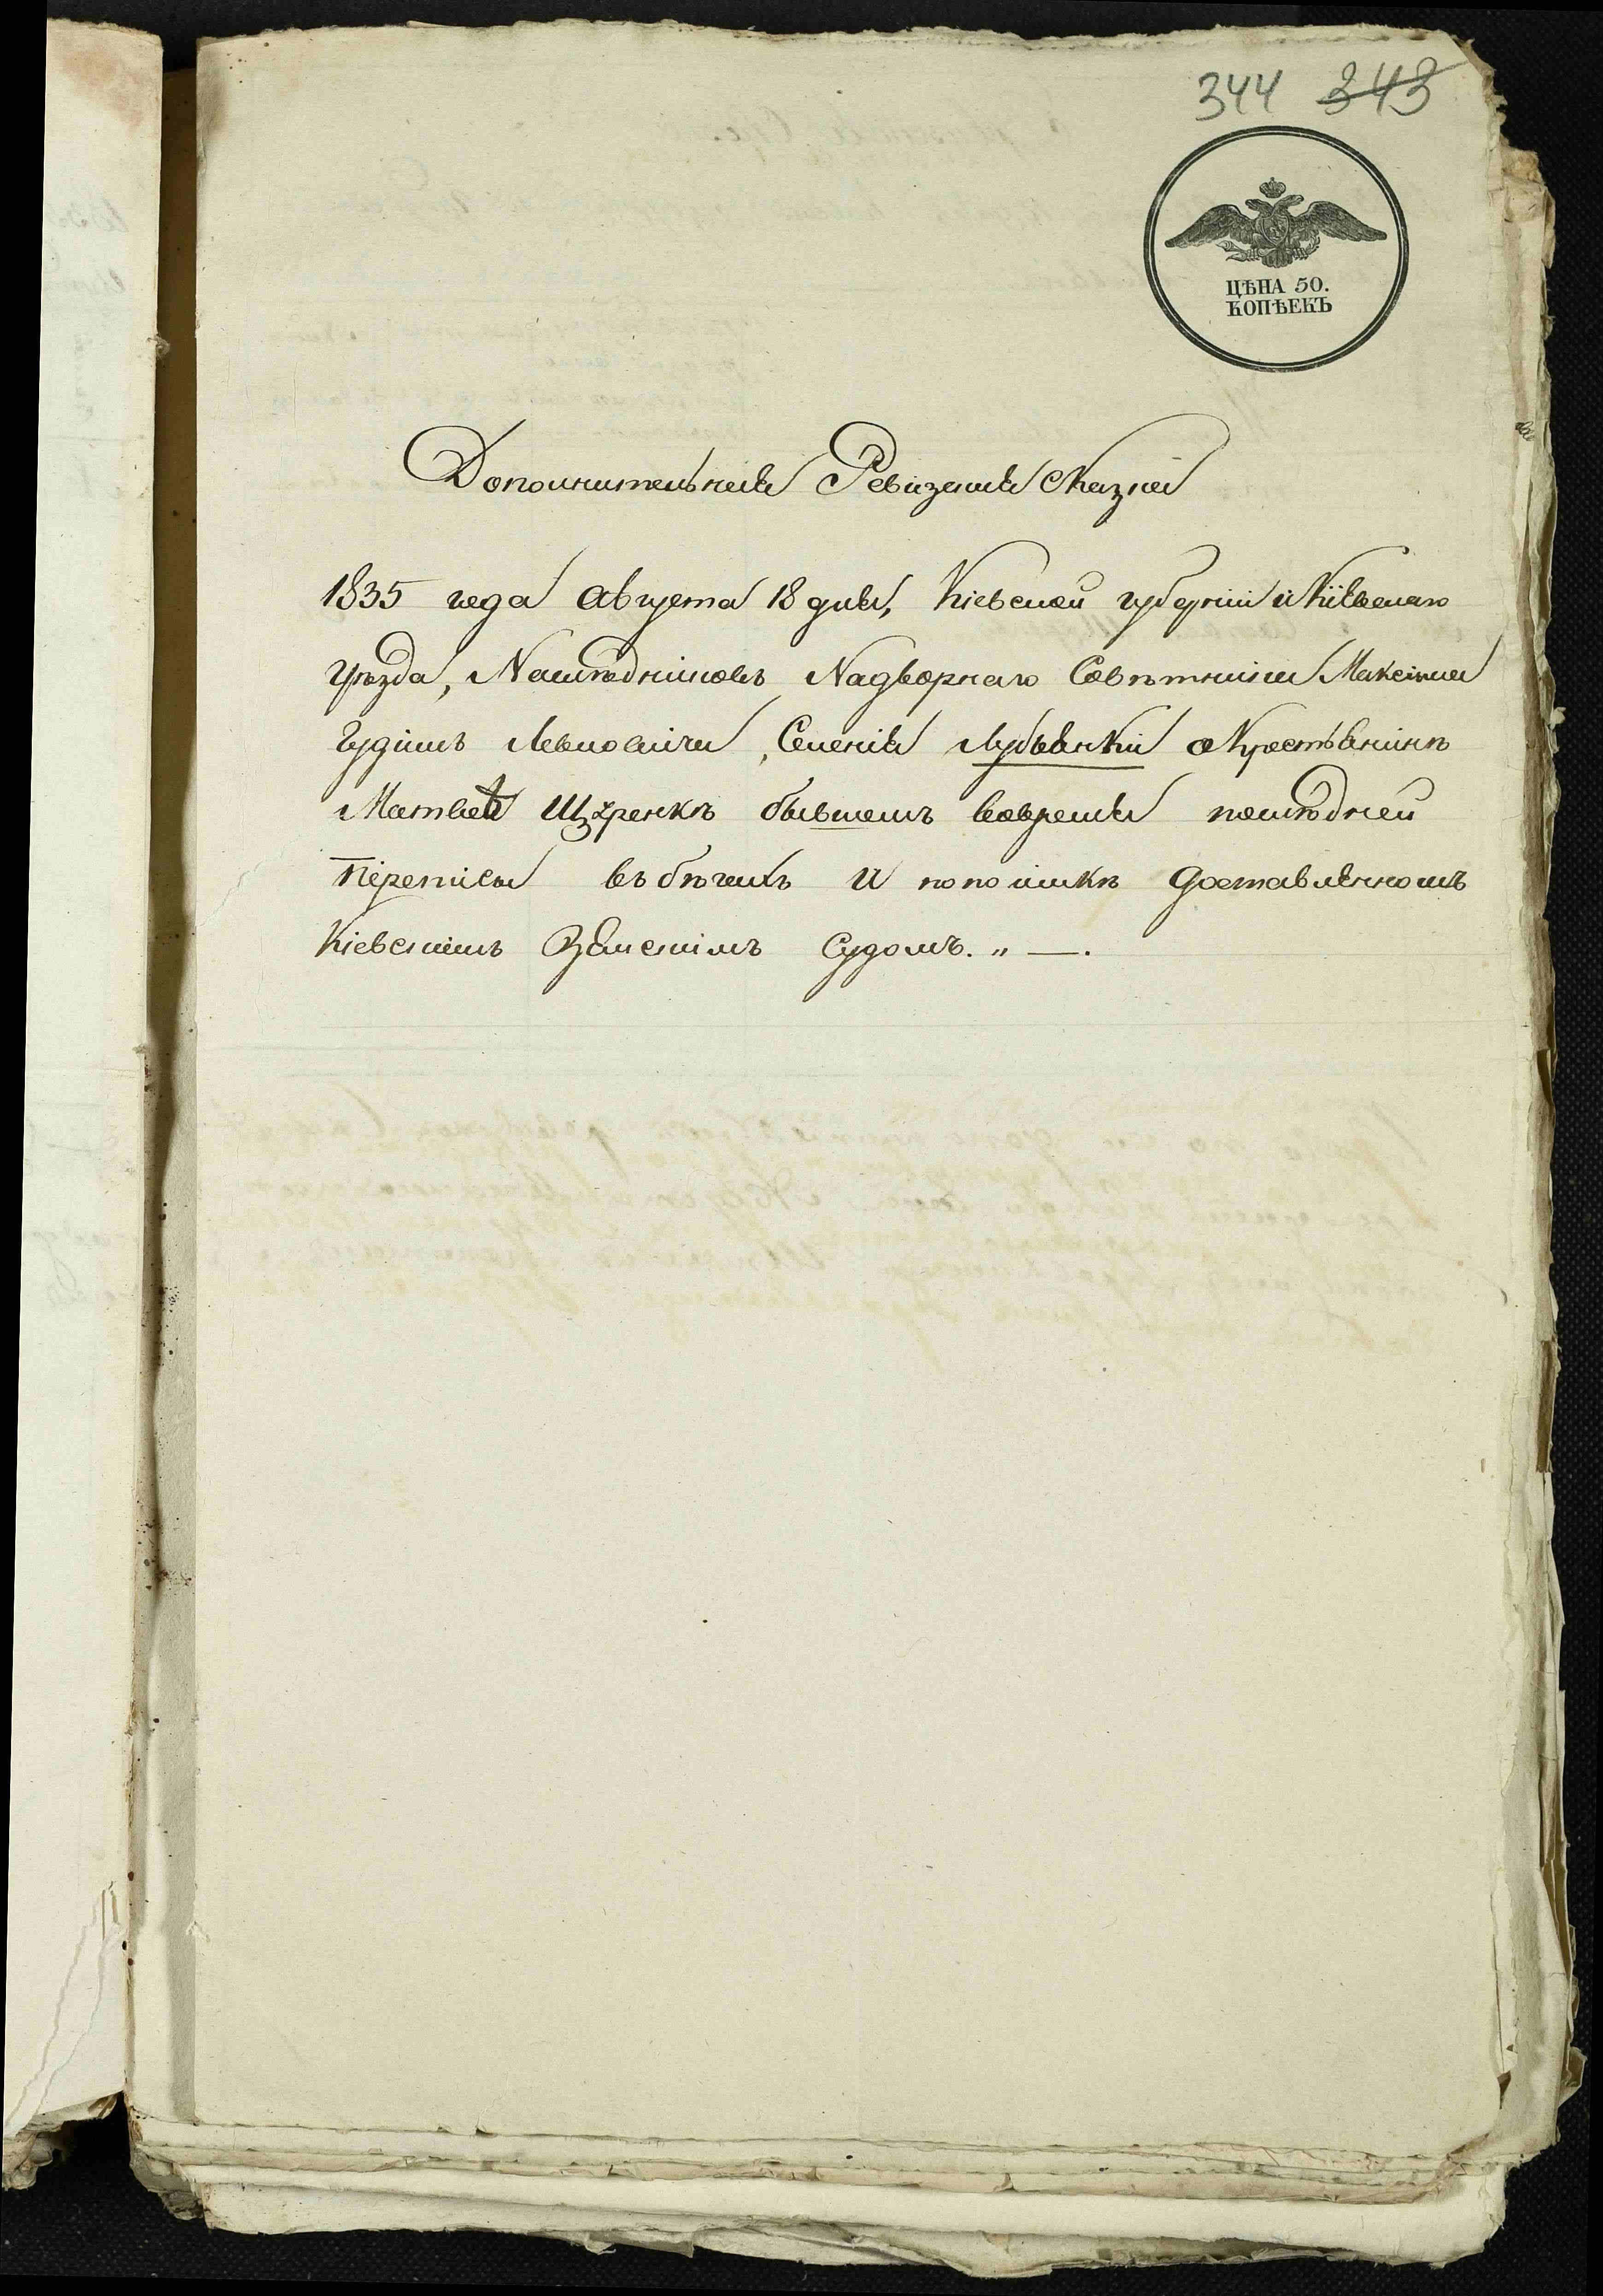 344 343
ЦѢНА 50.
КОПѢЕКЪ
Дополнительная Ревизская Сказка
1835 года Августа 18 дня, Кіевской губерніи и Кіевскаго
уѣзда, Наслѣдниковъ Надворнаго Совѣтника Максима
Гудимъ Левковича, Селенія Лубянки о Крестьянинѣ
Матвеѣ бывшемъ вовремя последней
Переписи въ бѣгахъ и по поимкѣ доставленномъ
Кіевскимъ Земскимъ Судомъ. „ —.